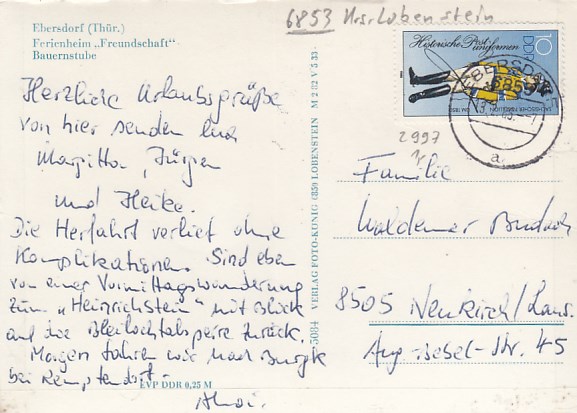 6853 Lobenstein
Ebersdorf (Thür.)
Ferienheim „Freundschaft"
Bauernstube
Historische Post-
uniformen
DDR
10
SÄCHSISCHER POSTILLION
UM 1850
EBERSDORF
6853
a
2997
Herzliche Urlaubsgrüße
von hier senden Euch
Margitta, Jürgen
und Heike.
Die Herfahrt verlief ohne
Komplikationen. Sind eben
von einer Vormittagswanderung
zum „Heinrichstein" mit Blick
auf die Bleilochtalsperre zurück.
Morgen fahren wir nach Burgk
bei Remptendorf.
Ahoi.
EVP DDR 0,25 M
5084 VERLAG FOTO-KÖNIG (685) LOBENSTEIN M 2 82 V 5 33
Familie
Waldemar
8505 Neukirch/Laus.
Aug.-Bebel-Str. 45